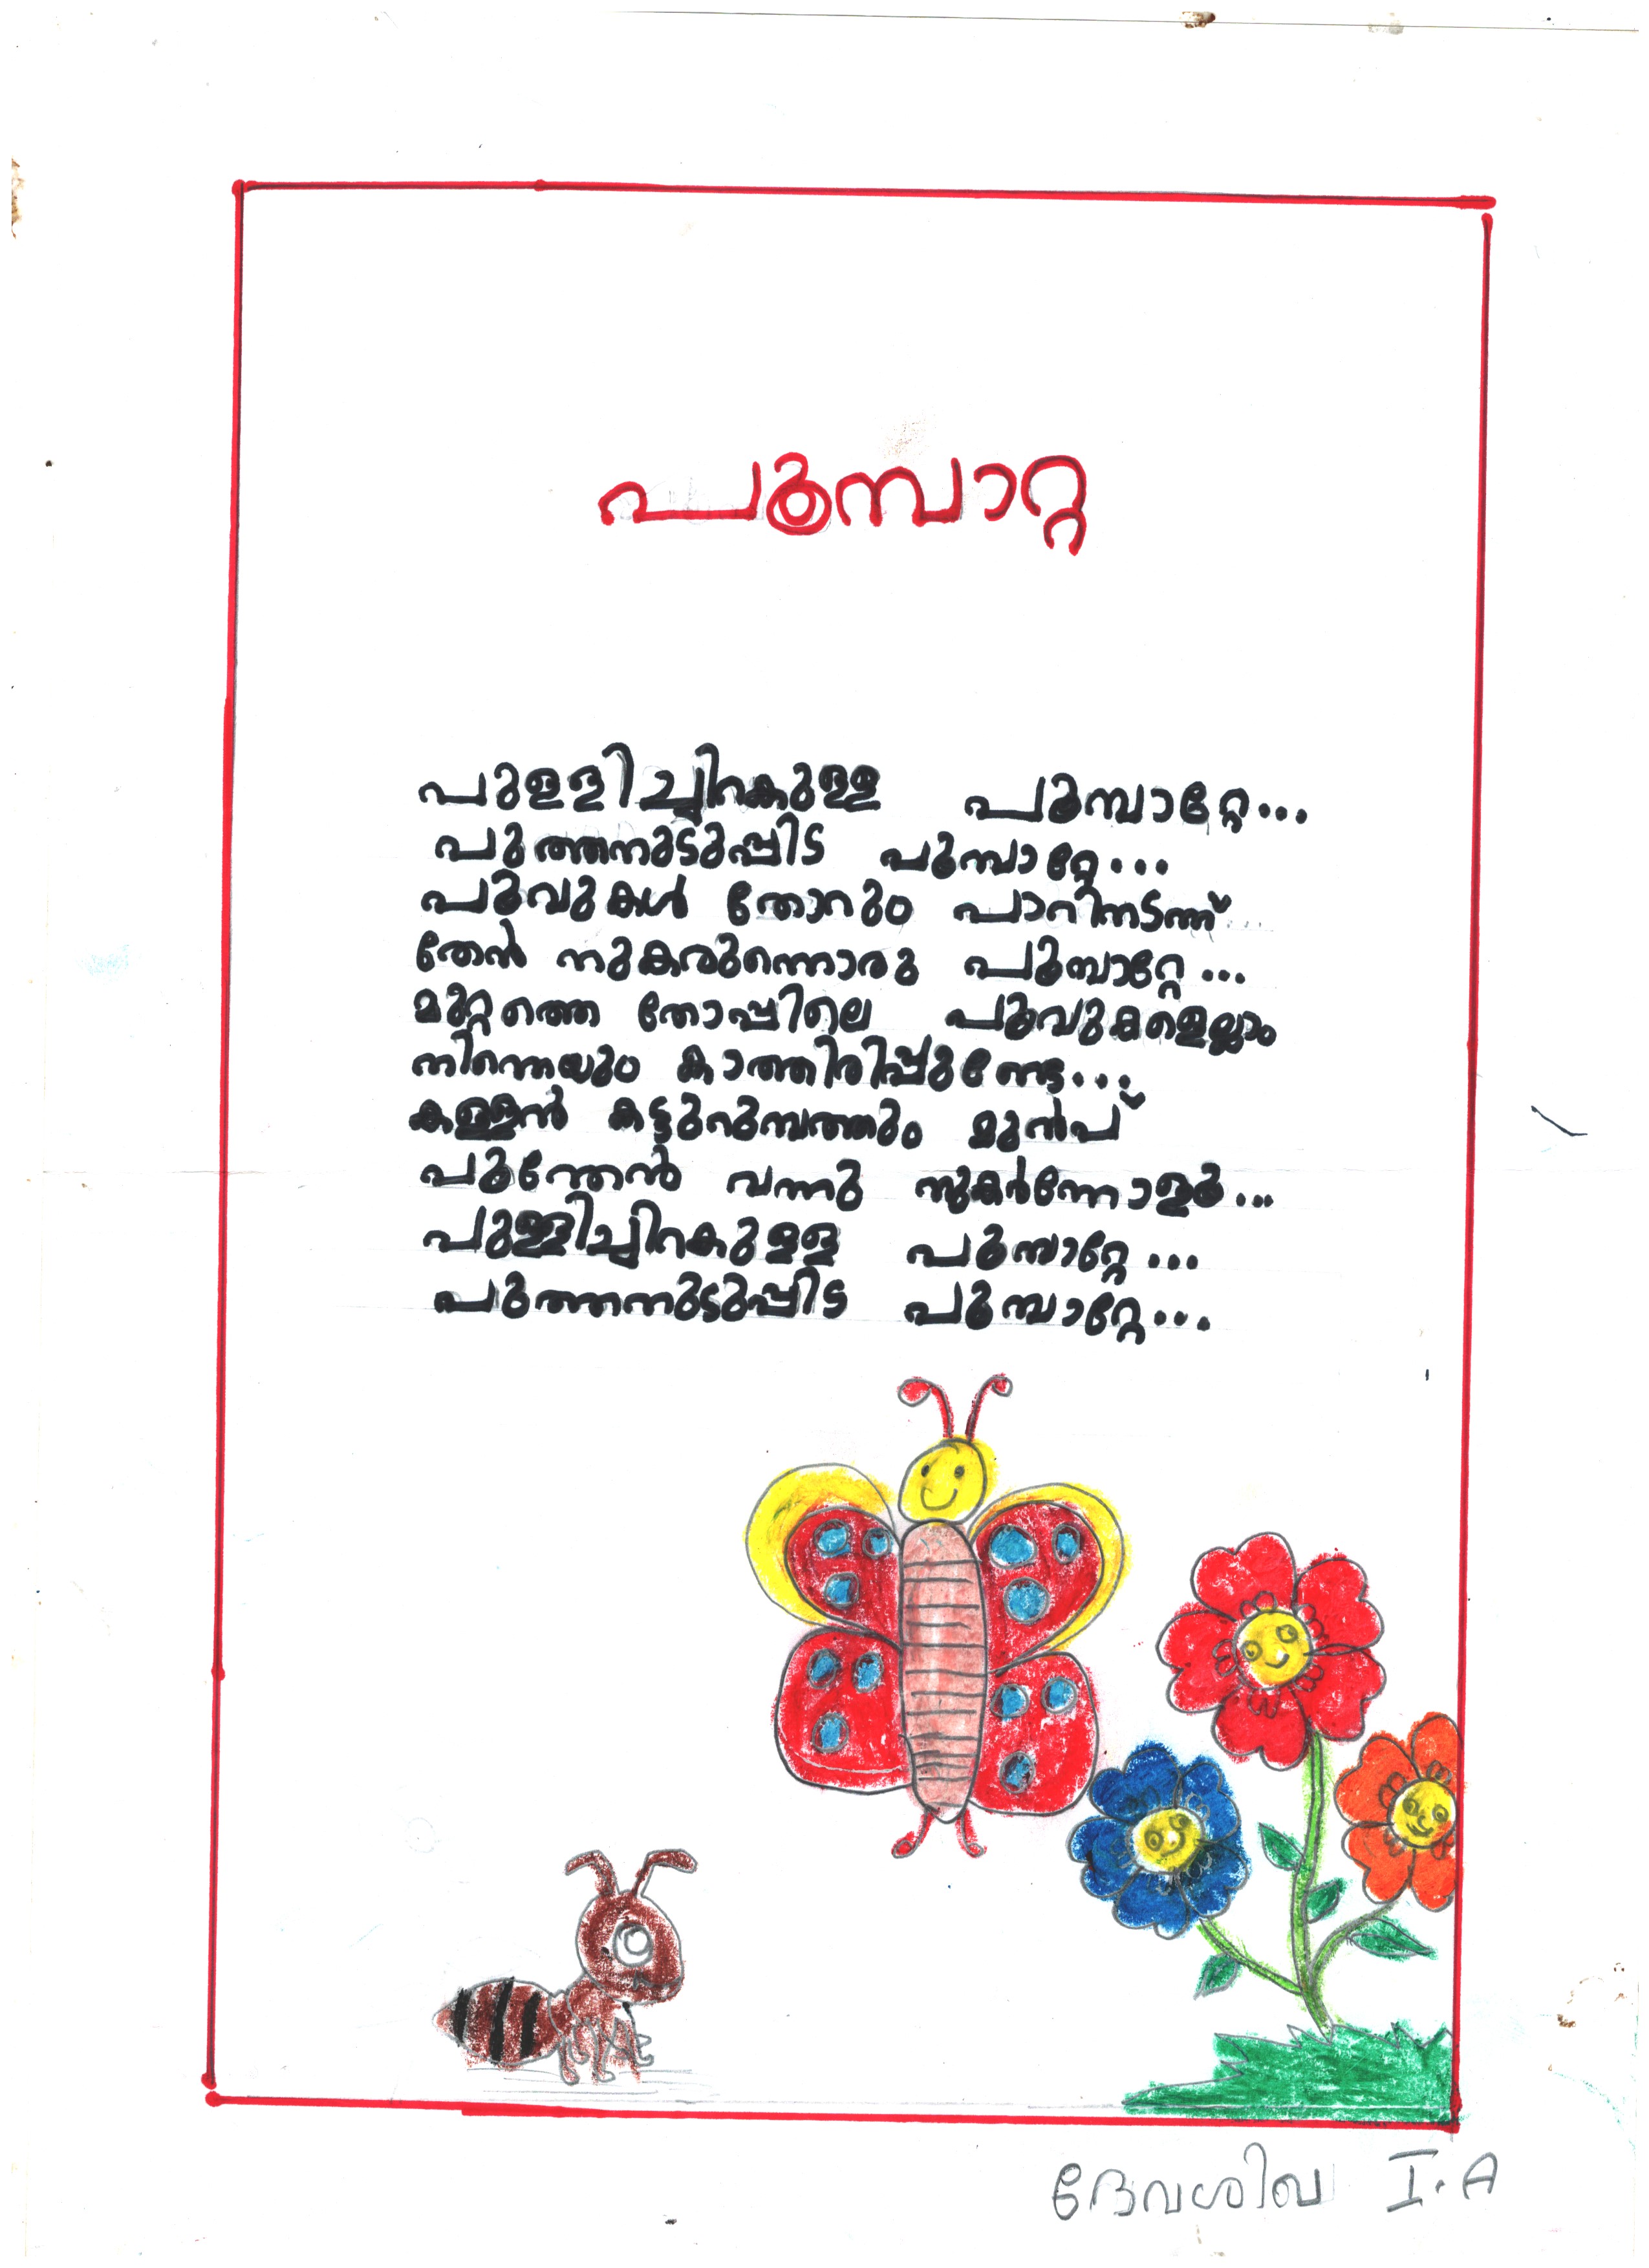 പൂമ്പാറ്റ
പുള്ളിച്ചിറകുള്ള പൂമ്പാറ്റേ...
പുത്തനുടുപ്പിട്ട പൂമ്പാറ്റേ...
പൂവുകൾ തോറും പാറിനടന്ന്
തേൻ നുകരുന്നൊരു പൂമ്പാറ്റേ...
മുറ്റത്തെ തോപ്പിലെ പൂവുകളെല്ലാം
നിന്നെയും കാത്തിരിപ്പുണ്ടേ...
കള്ളൻ കട്ടുറുമ്പെത്തും മുൻപ്
പൂന്തേൻ വന്നു നുകർന്നോളൂ...
പുള്ളിച്ചിറകുള്ള പൂമ്പാറ്റേ...
പുത്തനുടുപ്പിട്ട പൂമ്പാറ്റേ...
ദേവശിഖ I.A